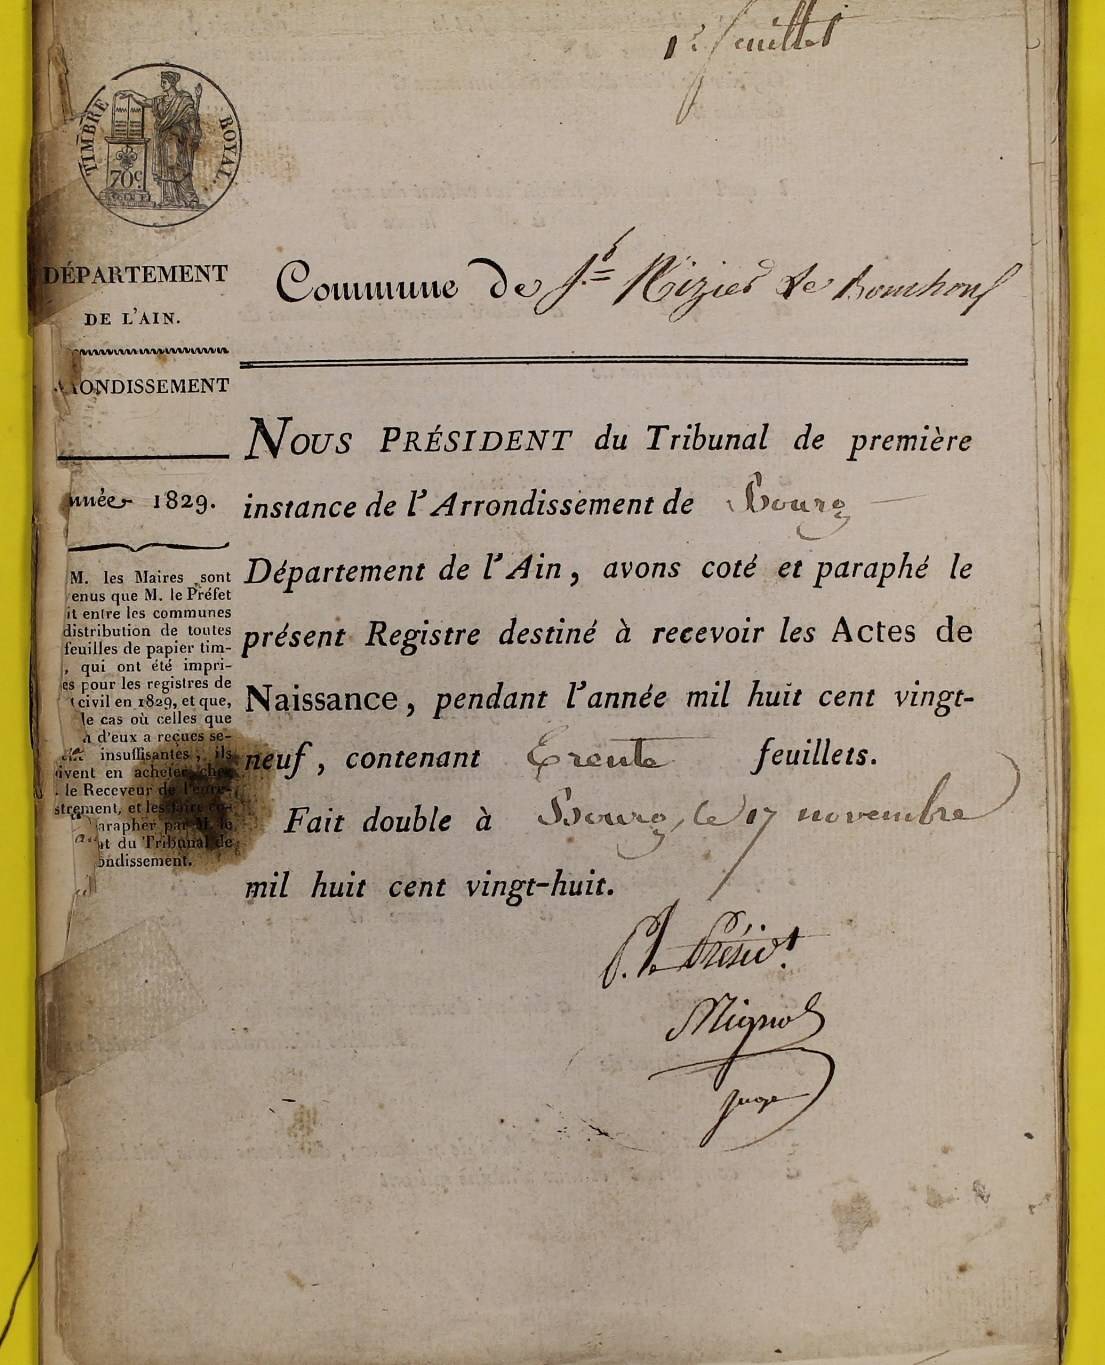 1er feuillet
TIMBRE ROYAL.
70c
DÉPARTEMENT
DE L'AIN.
RONDISSEMENT
nnée 1829.
M. les Maires sont
enus que M. le Préfet
it entre les communes
distribution de toutes
feuilles de papier tim-
, qui ont été impri-
es pour les registres de
t civil en 1829, et que,
le cas où celles que
n d'eux a reçues se-
insuffisantes, ils
ivent en acheter chez
. le Receveur de l'enre-
strement, et les faire co-
arapher par M. le
nt du Tribunal de
ondissement.
Commune de St Nizier le Bouchoux
NOUS PRÉSIDENT du Tribunal de première
instance de l'Arrondissement de Bourg
Département de l'Ain, avons coté et paraphé le
présent Registre destiné à recevoir les Actes de
Naissance, pendant l'année mil huit cent vingt-
neuf, contenant Trente feuillets.
Fait double à Bourg, le 17 novembre
mil huit cent vingt-huit.
P. le Présidt.
juge